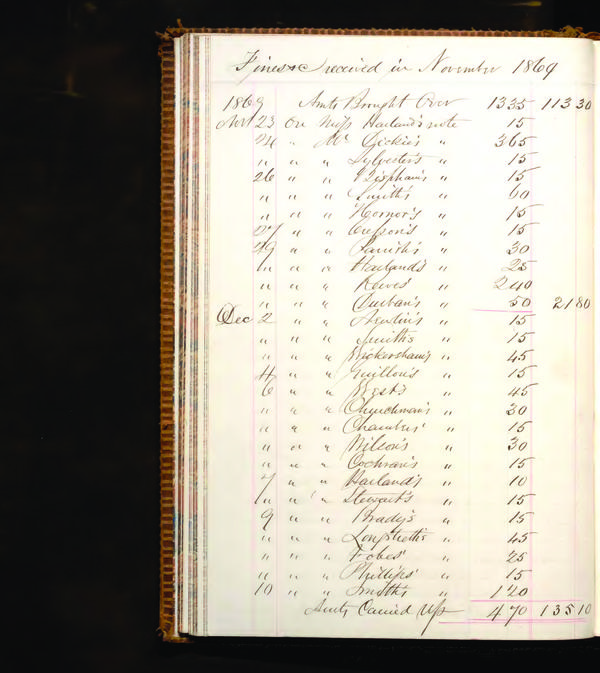 Fines &c received in November 1869
1869 Amts Brought Over 1335 113 30
Nov 23 On Miss Harland's note 15
24 " Mr Dickin's " 365
" " " Sylvester's " 15
26 " " Bispham's " 15
" " " Smith's " 60
" " " Hornor's " 15
27 " " Cresson's " 15
29 " " Smith's " 30
" " " Harland's " 25
" " " Reeves' " 240
" " " Durban's " 50 21 80
Dec 2 " " " 15
" " " Smith's " 15
" " " Wickersham's " 45
4 " " Guillou's " 15
6 " " West's " 45
" " " Churchman's " 30
" " " Chambers' " 15
" " " Wilson's " 30
" " " Cochran's " 15
7 " " Harland's " 10
" " " Stewart's " 15
9 " " Brady's " 15
" " " Longstreth's " 45
" " " Fobes' " 25
" " " Phillips' " 15
10 " " Smith's " 120
Amts Carried Up 470 135 10